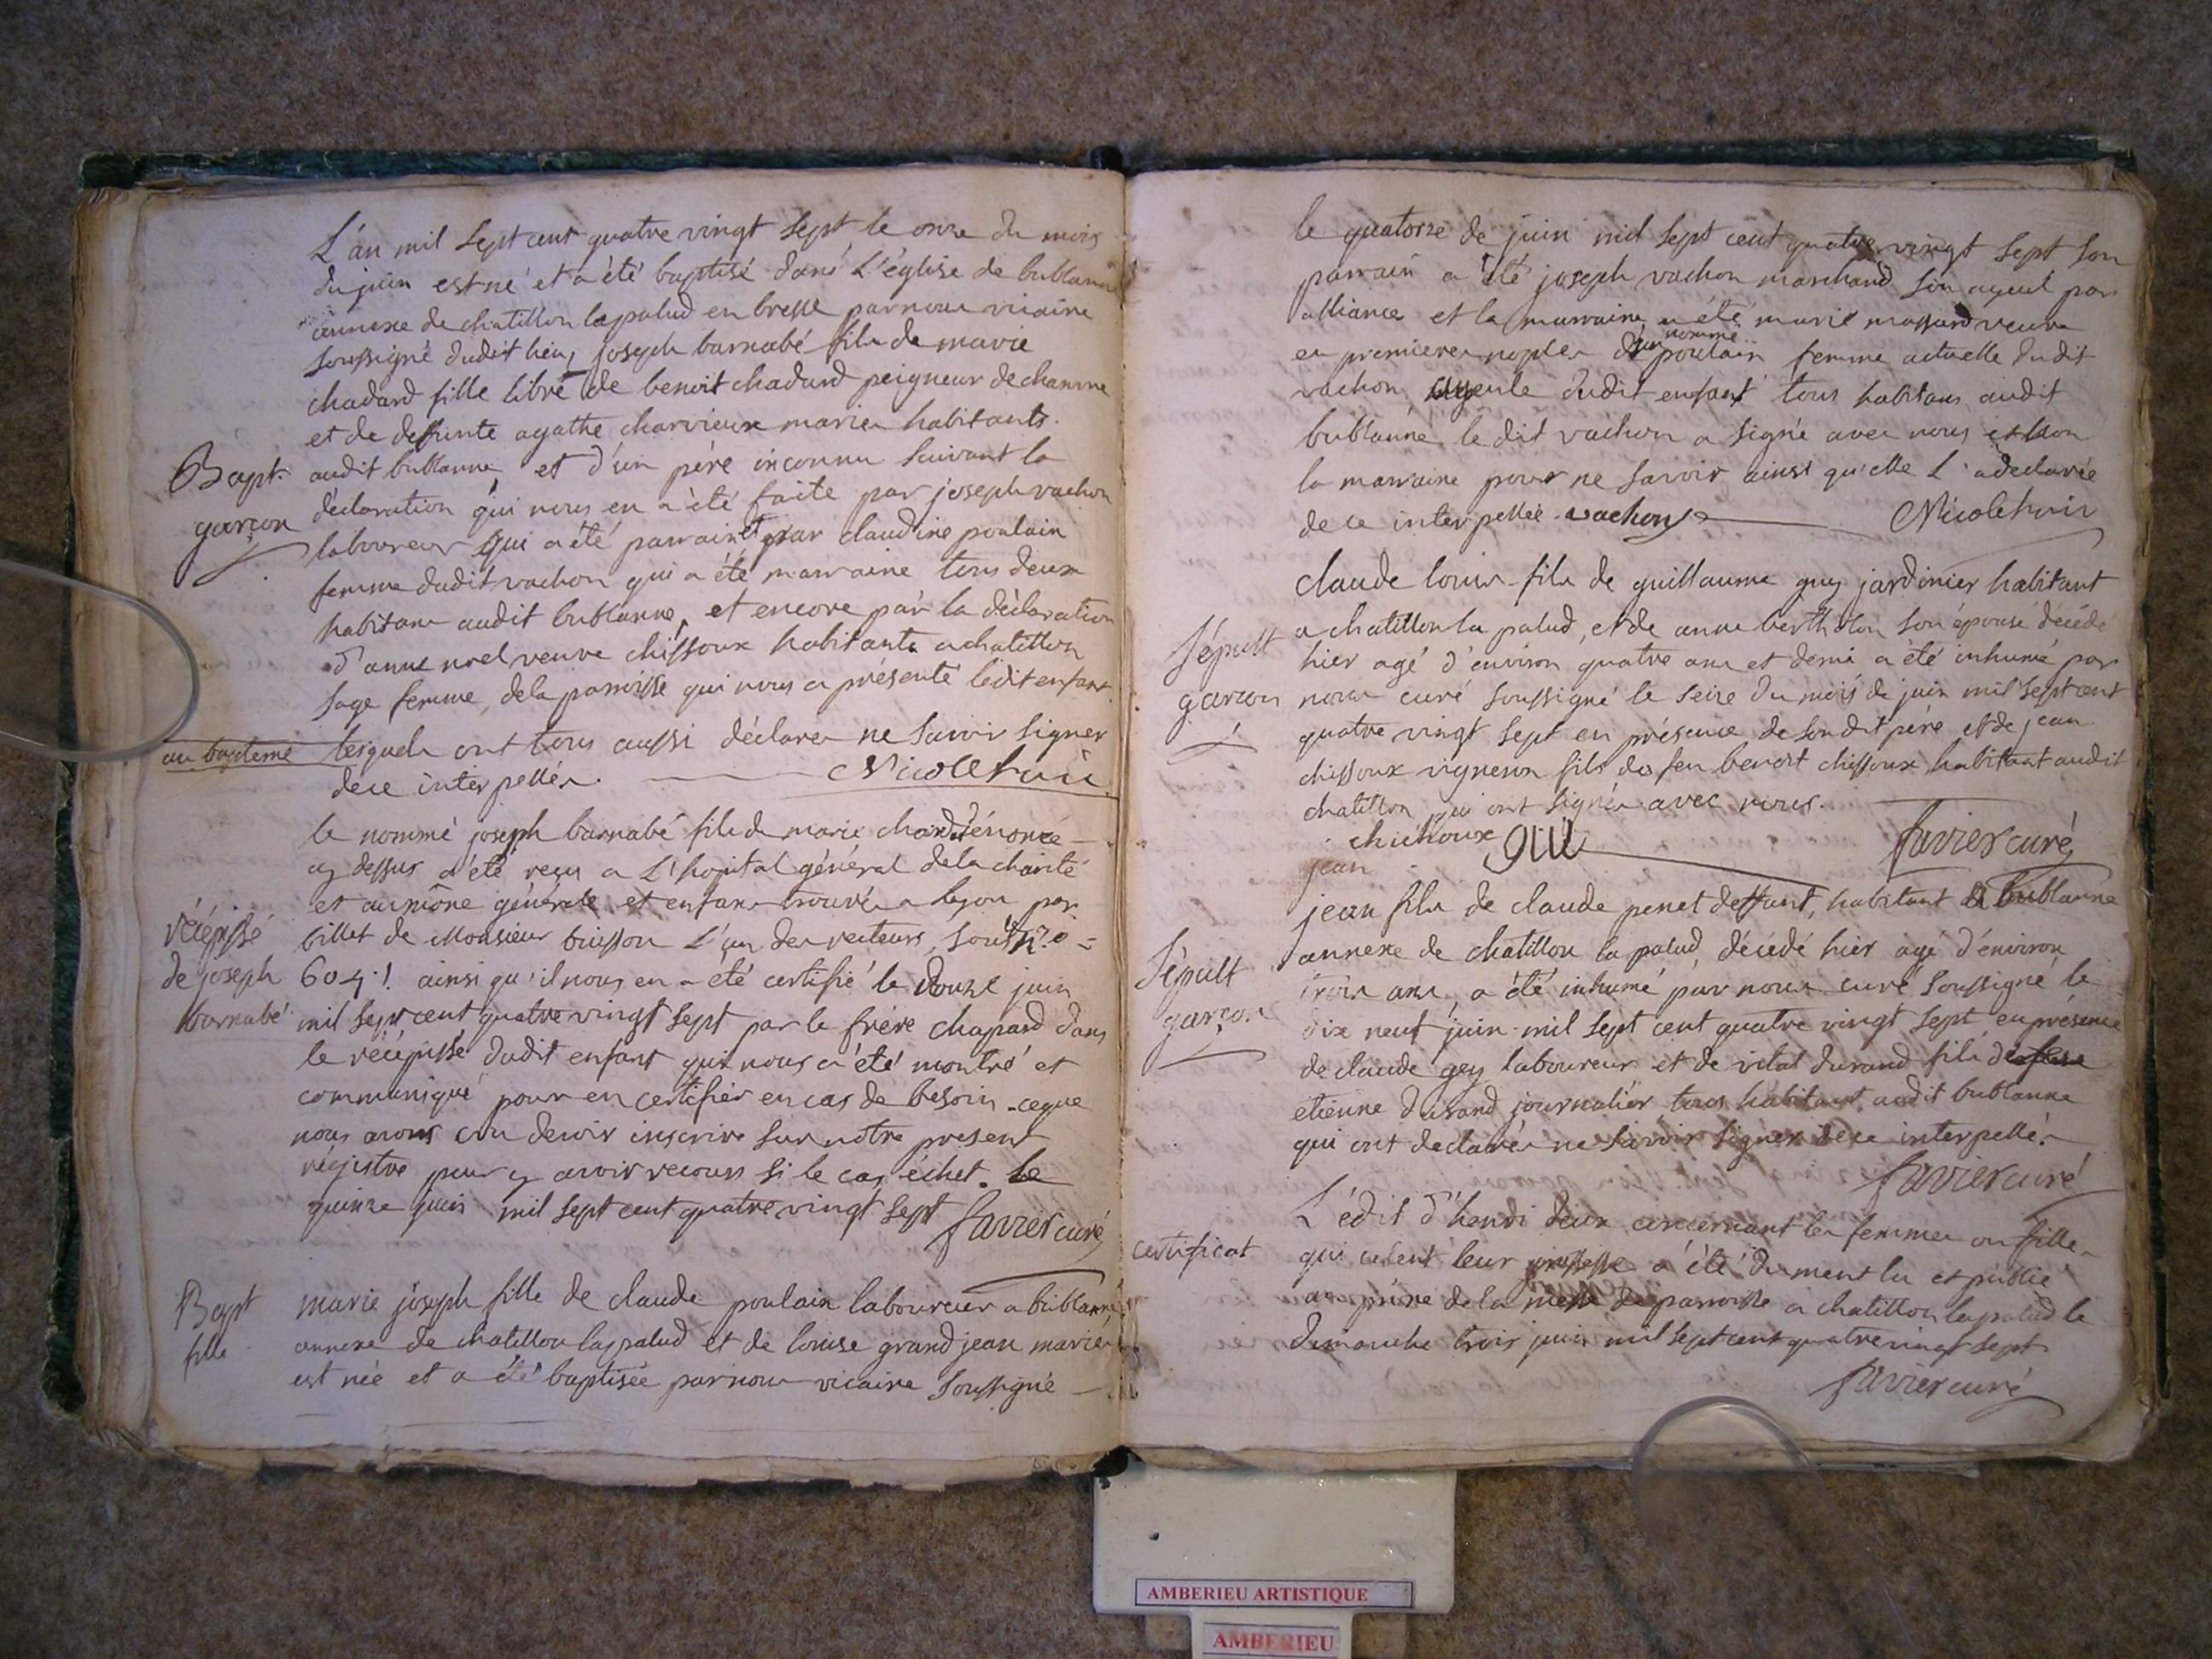 L'an mil sept cent quatre vingt sept le onze du mois
du juin est né et a été baptisé dans L'église de bublanne
annexe de chatillon la palud en bresse par nous vicaire
soussigné dudit lieu, joseph barnabé fils de marie
chadard fille libre de benoit chadard peigneur de chanvre
et de deffunte agathe charvieux mariés habitants
Bapt.
garçon
audit bublanne, et d'un père inconnu suivant la
déclaration qui nous en a été faite par joseph vachon
laboureur qui a été parrain et par claudine poulain
femme dudit vachon qui a été marraine tous deux
habitans audit bublanne, et encore par la déclaration
d'anne noel veuve chissoux habitante a chatillon
sage femme, de la parroisse qui nous a présenté ledit enfant
au bapteme lesquels ont tous aussi déclarés ne savoir signer
de ce interpellés. Nicole
le nommé joseph barnabé fils de marie énoncé
cy dessus a été reçu a L'hopital général de la charité
et aumône générale et enfans trouvés a Lyon par
récépissé
de joseph
barnabé
billet de Monsieur buisson L'un des recteurs, sous N.o
ainsi qu'il nous en a été certifié le douze juin
mil sept cent quatre vingt sept par le frère chapard dans
le récépissé dudit enfant qui nous a été montré et
communiqué pour en certifier en cas de besoin. ceque
nous avons cru devoir inscrire sur notre present
régistre pour y avoir recours si le cas échet. le
quinze juin mil sept cent quatre vingt sept favier curé
Bapt
fille
marie joseph fille de claude poulain laboureur a bublanne,
annexe de chatillon la palud et de louise grandjean mariés
est née et a été baptisée par nous vicaire soussigné
le quatorze de juin mil sept cent quatre vingt sept son
parrain a été joseph vachon marchand son ayeul par
alliance et la marraine a été marie massard veuve
en premieres noples d'un nommé poulain femme actuelle dudit
vachon ayeule dudit enfant tous habitans audit
bublanne le dit vachon a signé avec nous et non
la marraine pour ne savoir ainsi qu'elle L'a declarée
de ce interpellée. vachon Nicole
Sépult
garcon
claude louis fils de guillaume guy jardinier habitant
a chatillon la palud, et de anne bertholon son épouse décédé
hier agé d'environ quatre ans et demi a été inhumé par
nous curé soussigné le seize du mois de juin mil sept cent
quatre vingt sept en présence de son dit père et de jean
chissoux vigneron fils de feu benoit chissoux habitant audit
chatillon qui ont signés avec nous.
jean chichoux gui favier curé
Sépult
garçon
jean fils de claude penet deffunt, habitant a bublanne
annexe de chatillon la palud, décédé hier agé d'environ
trois ans, a été inhumé par nous curé soussigné le
dix neuf juin mil sept cent quatre vingt sept en présence
de claude gey laboureur et de vital durand fils
etienne durand journalier tous habitant audit bublanne
qui ont declarés ne savoir signer de ce interpellés
favier curé
certificat
L'édit d'henri deux concernant les femmes ou filles
qui celent leur grossesse a été dument lu et publié
au prône de la messe de parroisse a chatillon la palud le
dimanche trois juin mil sept cent quatre vingt sept
favier curé
AMBERIEU ARTISTIQUE
AMBERIEU